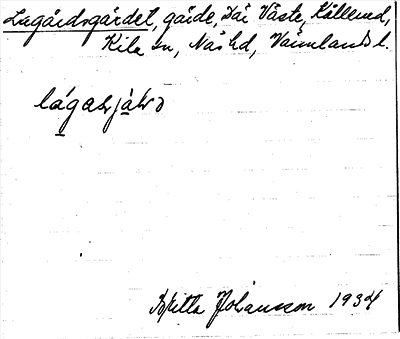 Lagårdsgärdet, gärde, Där Väste, Källerud,
Kila sn, Näs hd, Värmlands l.
lágasjàḷo
Britta Johansson 1934